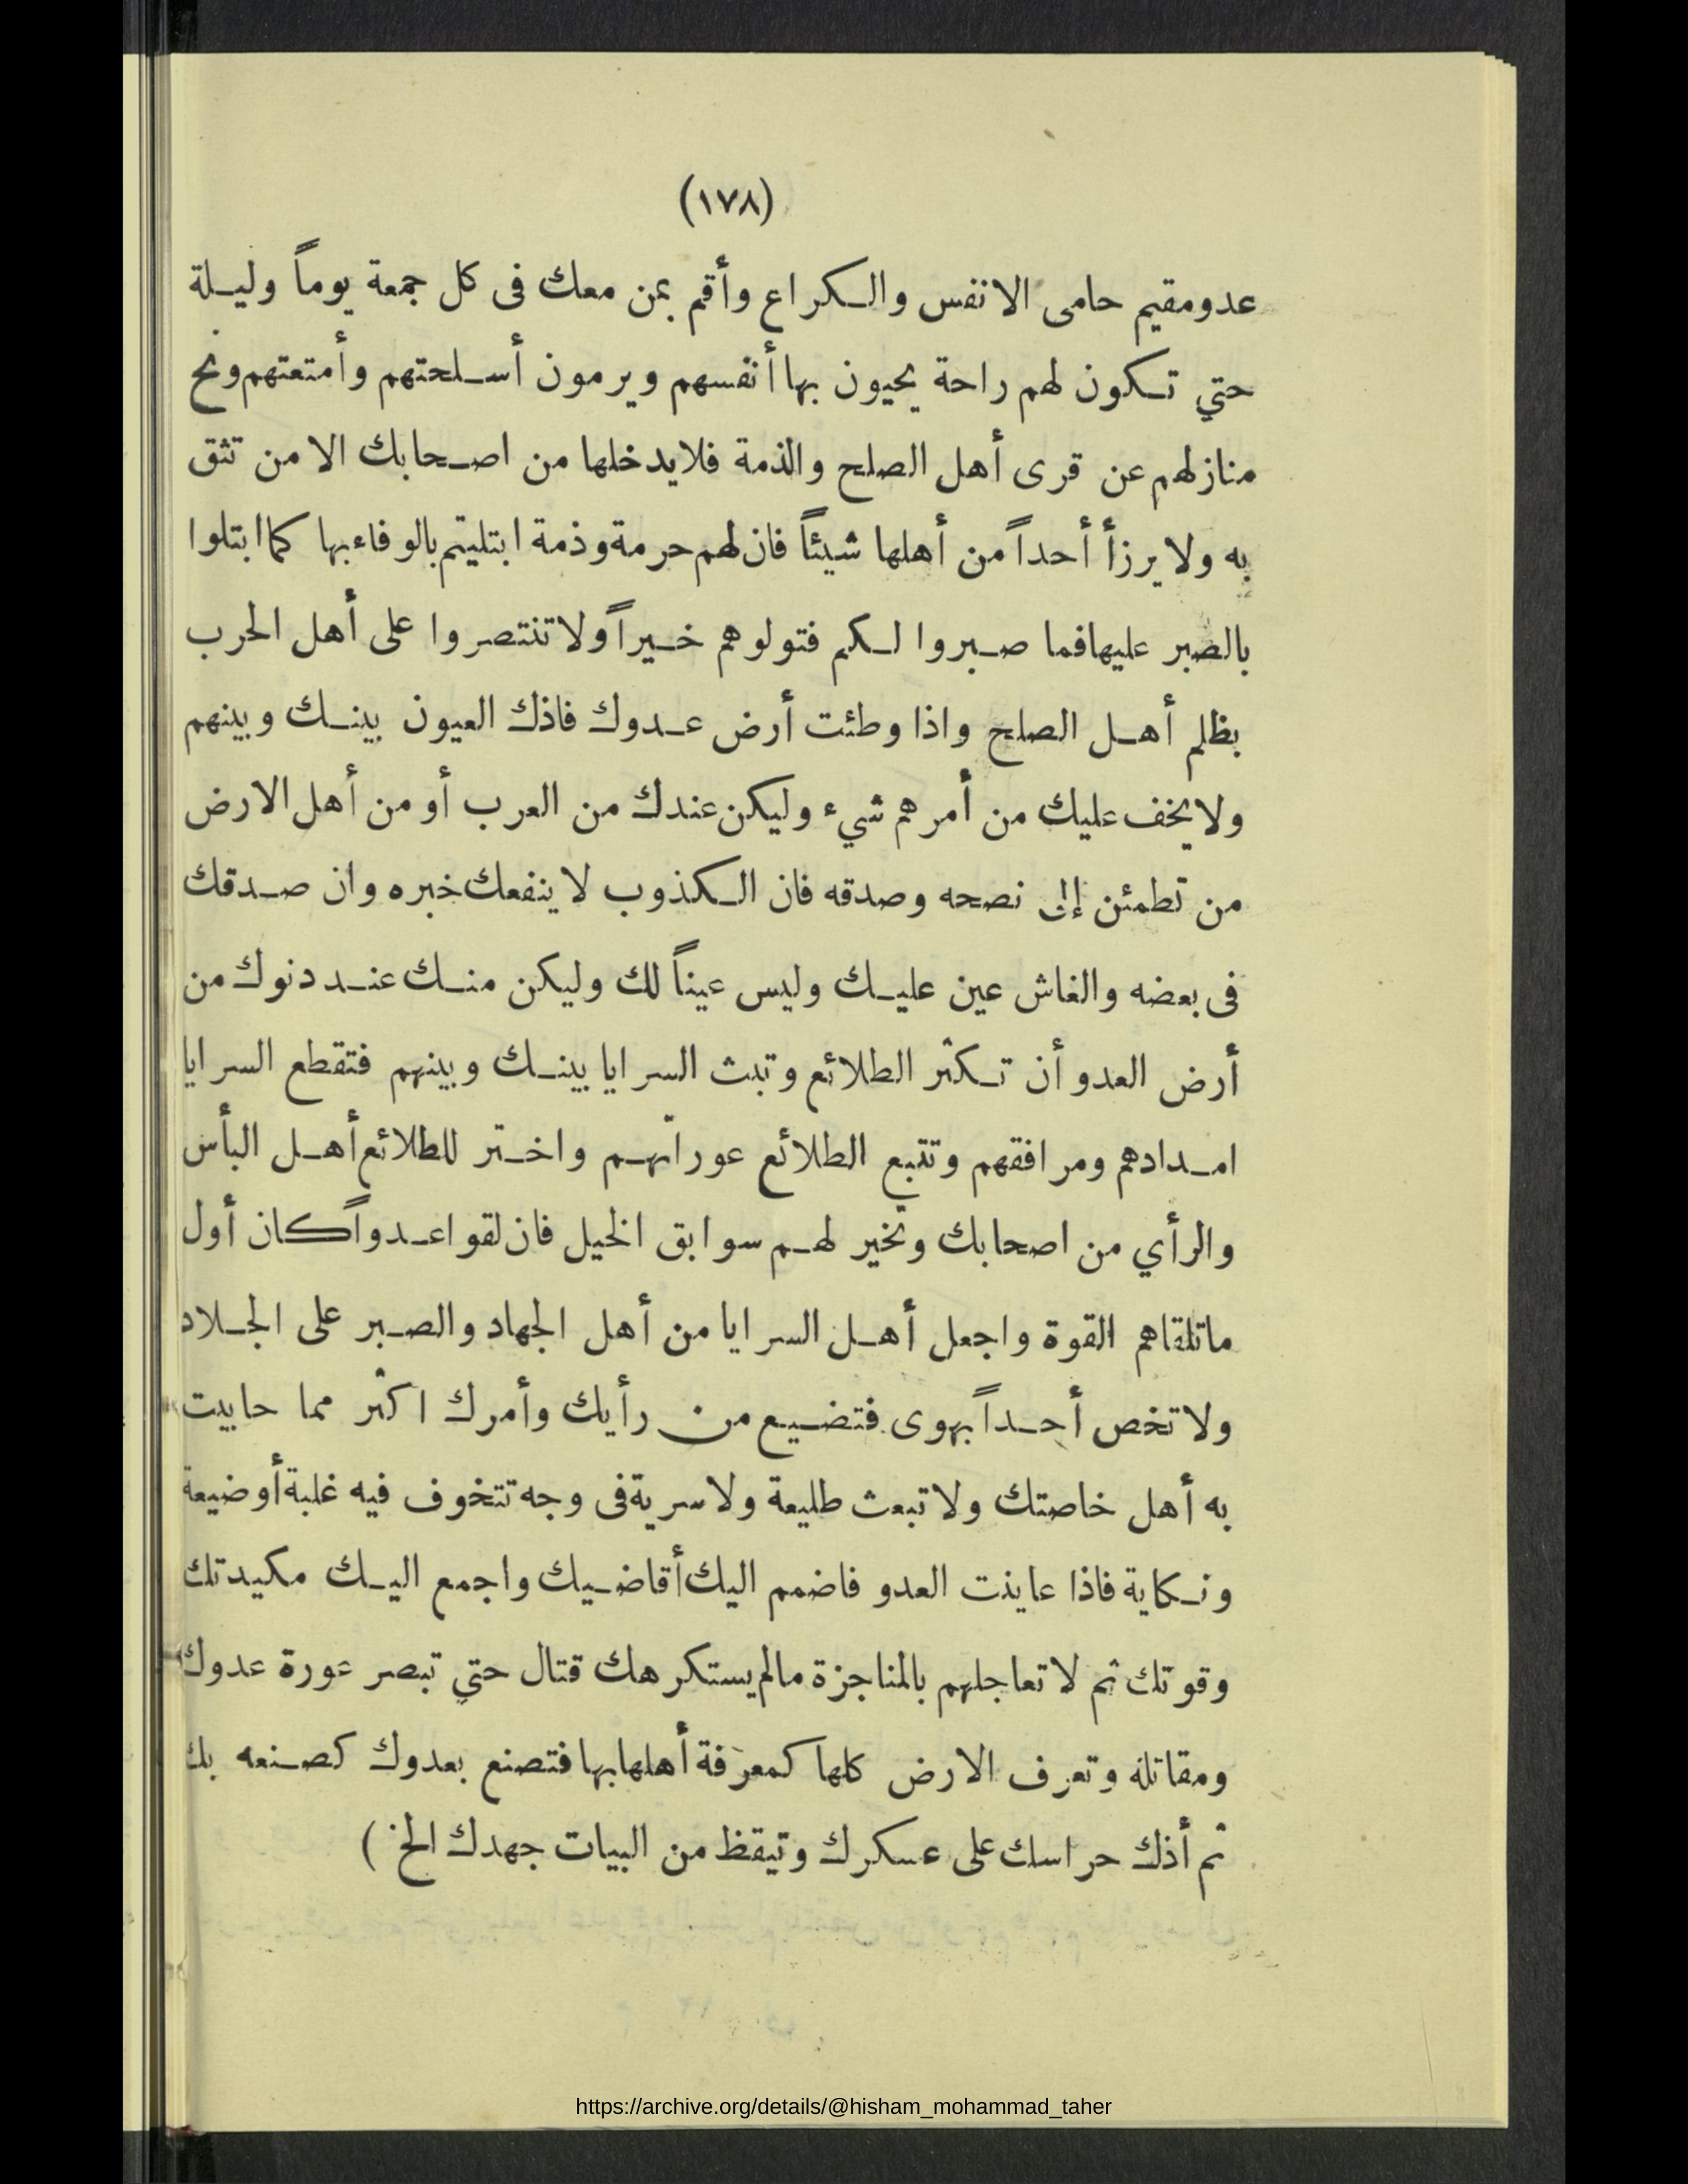 (١٧٨)
عدو مقيم حامى الانفس والكراع وأقم بمن معك فى كل جمعة يوماً وليلة
حتي تكون لهم راحة يحيون بها أنفسهم ويرمون أسلحتهم وأمتعتهم ونح
منازلهم عن قرى أهل الصلح والذمة فلا يدخلها من اصحابك الا من تثق
به ولا يرزأ أحداً من أهلها شيئاً فان لهم حرمة وذمة ابتليتم بالوفاء بها كما ابتلوا
بالصبر عليها فما صبروا لكم فتولوهم خيراً ولا تنتصروا على أهل الحرب
بظلم أهل الصلح واذا وطئت أرض عدوك فاذك العيون بينك وبينهم
ولا يخف عليك من أمرهم شيء وليكن عندك من العرب أو من أهل الارض
من تطمئن إلى نصحه وصدقه فان الكذوب لا ينفعك خبره وان صدقك
فى بعضه والغاش عين عليك وليس عيناً لك وليكن منك عند دنوك من
أرض العدو أن تكثر الطلائع وتبث السرايا بينك وبينهم فتقطع السرايا
امدادهم ومرافقهم وتتبع الطلائع عوراتهم واختر للطلائع أهل البأس
والرأي من اصحابك وتخير لهم سوابق الخيل فان لقوا عدواً كان أول
ماتلقاهم القوة واجعل أهل السرايا من أهل الجهاد والصبر على الجلاد
ولا تخص أحداً بهوى فتضيع من رأيك وأمرك اكثر مما حابيت
به أهل خاصتك ولا تبعث طليعة ولا سرية فى وجه تتخوف فيه غلبة أو ضيعة
ونكاية فاذا عاينت العدو فاضمم اليك أقاضيك واجمع اليك مكيدتك
وقوتك ثم لا تعاجلهم بالمناجزة مالم يستكرهك قتال حتي تبصر عورة عدوك
ومقاتله وتعرف الارض كلها كمعرفة أهلها بها فتصنع بعدوك كصنعه بك
ثم أذك حراسك على عسكرك وتيقظ من البيات جهدك الخ )
https://archive.org/details/@hisham_mohammad_taher